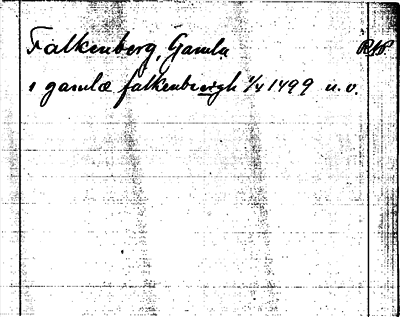 Falkenberg, Gamla
i gamlæ falkenbergh 1/4 1499 u.v.